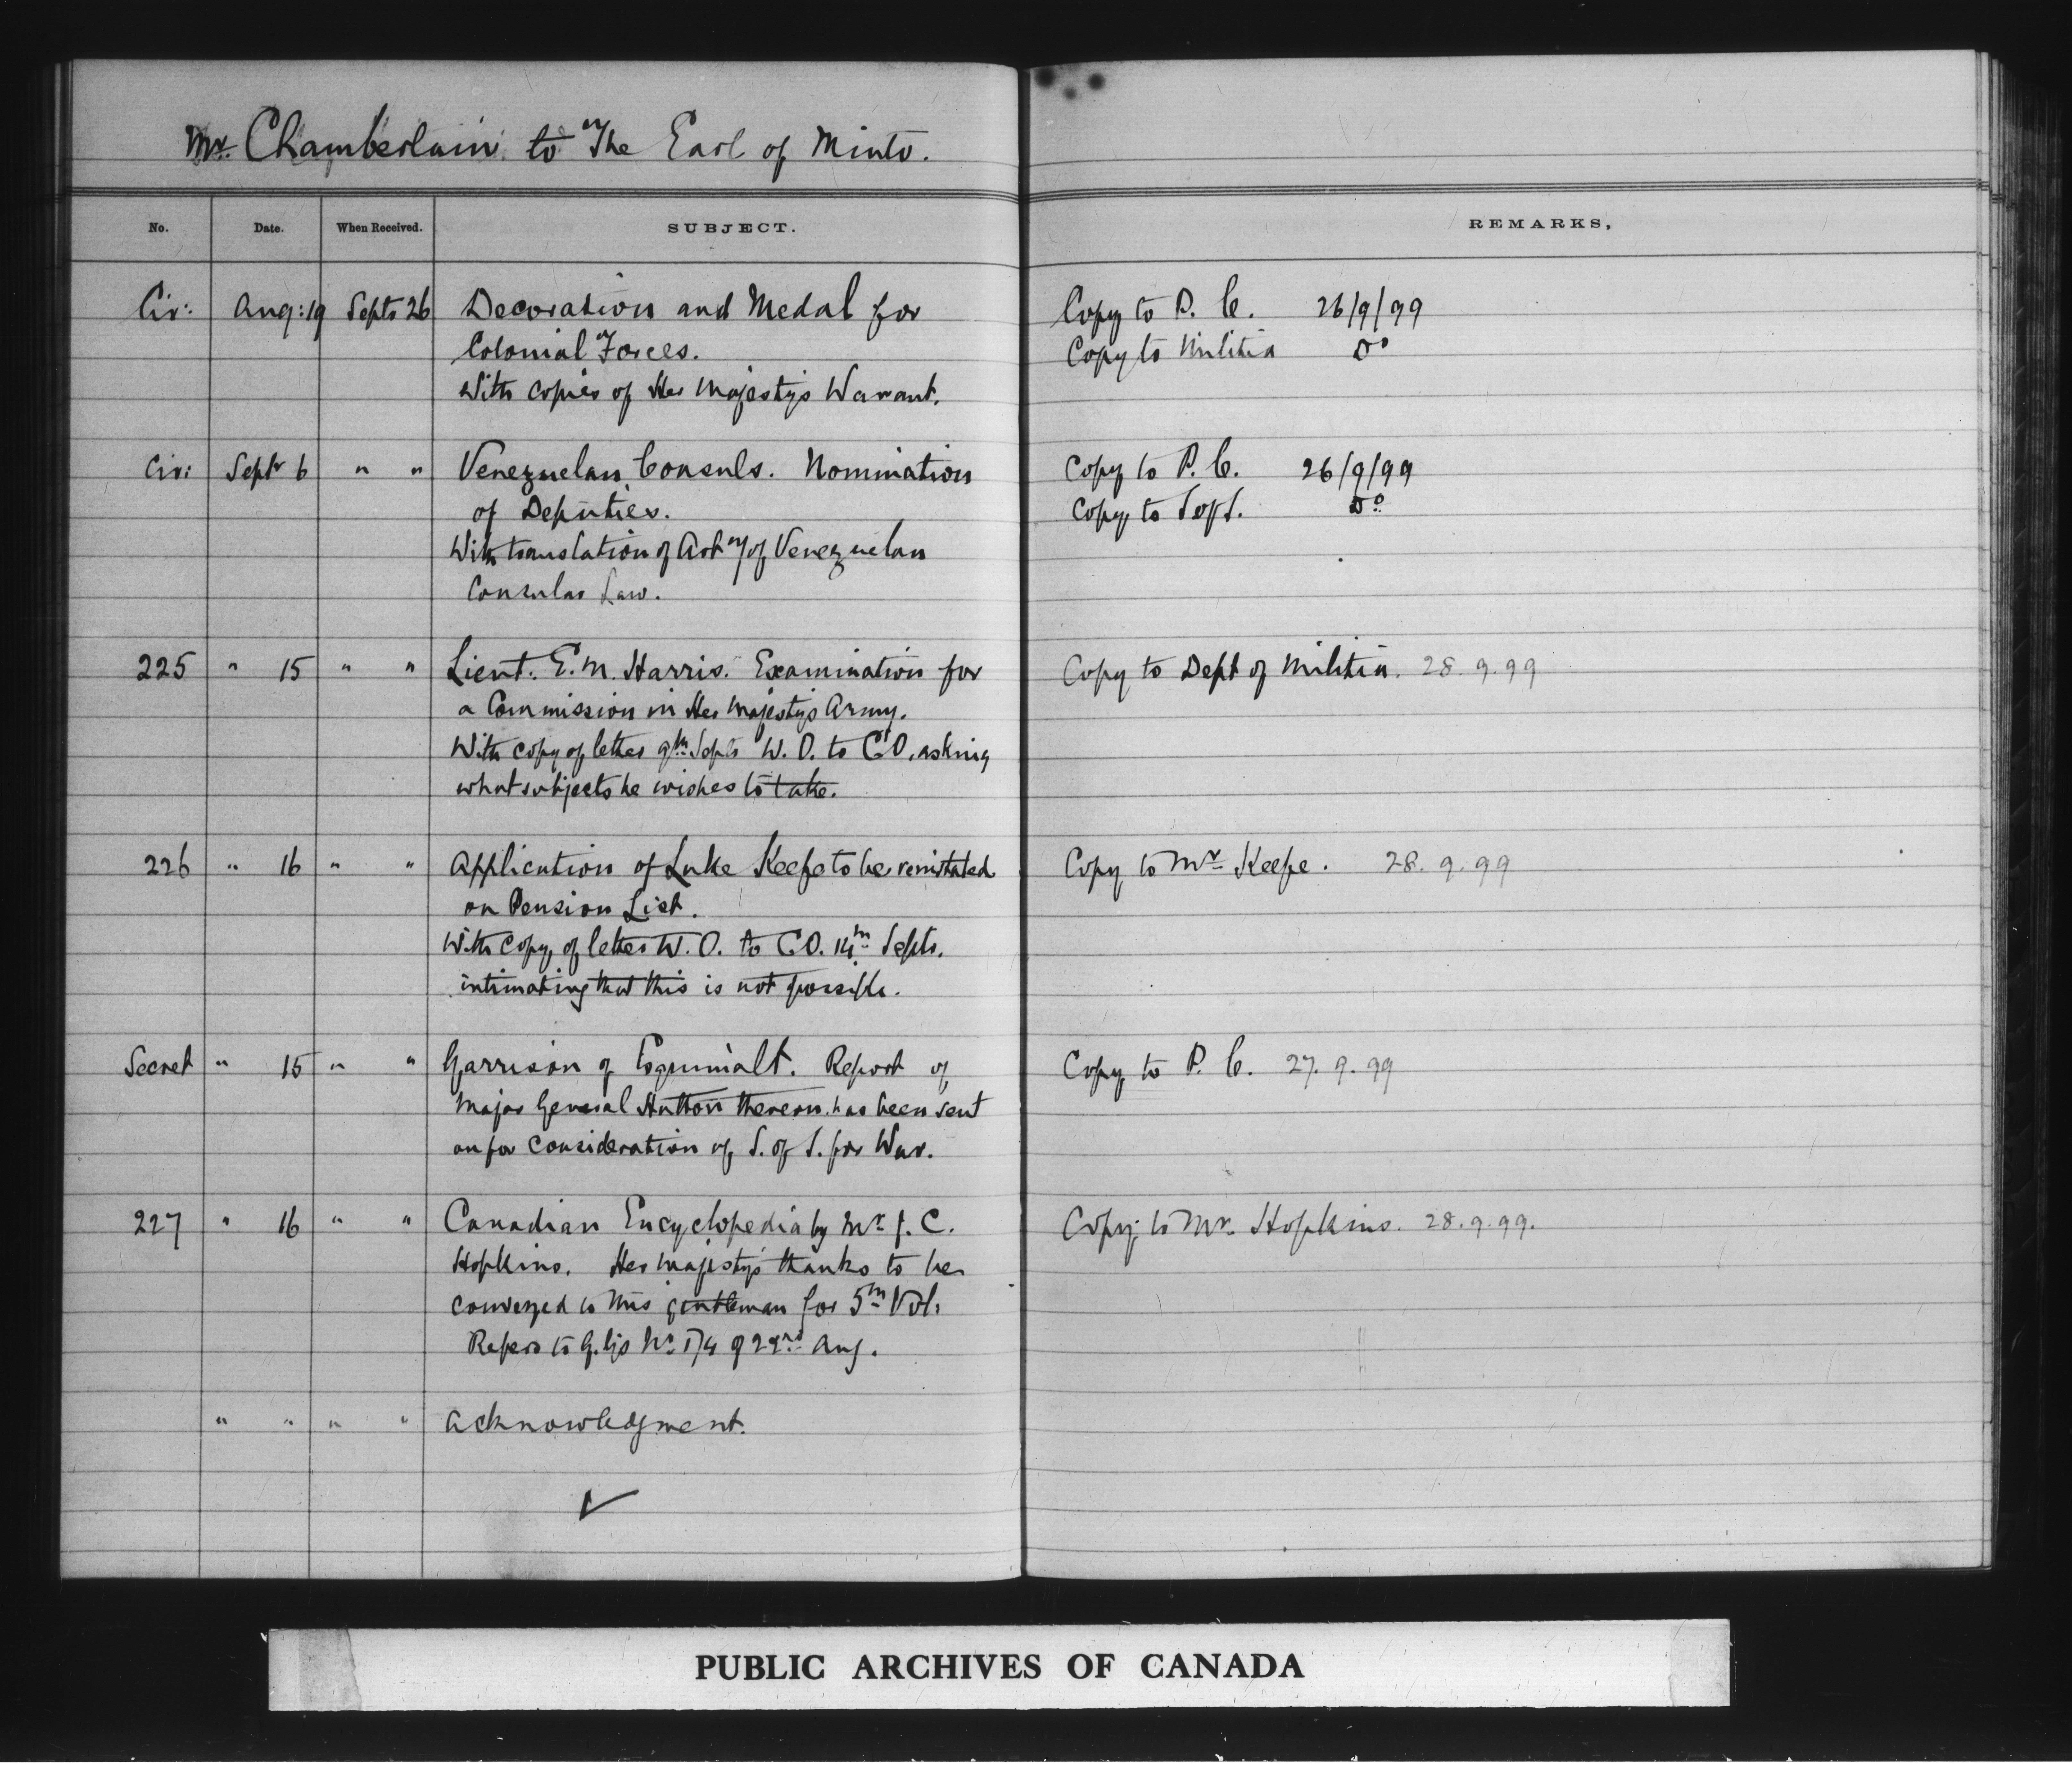 Mr. Chamberlain to The Earl of Minto.
No. Date. When Received. SUBJECT. REMARKS.
Cir: Aug: 19 Septr 26 Decoration and Medal for Copy to P. C. 26/9/99
Colonial Forces. Copy to Militia Do
With copies of Her Majesty's Warrant.
Cir: Septr 6 " " Venezuelan Consuls. Nomination Copy to P. C. 26/9/99
of Deputies. Copy to Do
With translation of Art of Venezuelan
Consular Law.
225 " 15 " " Lieut. E. M. Harris. Examination for Copy to Dept of Militia. 28.9.99
a Commission in Her Majesty's Army.
With copy of letter 9th Septr W. O. to C.O. asking
what subjects he wishes to take.
226 " 16 " " Application of Luke Keefe to be reinstated Copy to Mr Keefe. 28.9.99
on Pension List.
With copy of letter W. O. to C.O. 14th Septr.
intimating that this is not possible.
Secret " 15 " " Garrison of Esquimalt. Report of Copy to P. C. 27.9.99
Major General Hutton thereon has been sent
on for consideration of S. of S. for War.
227 " 16 " " Canadian Encyclopedia by Mr J. C. Copy to Mr. Hopkins. 28.9.99.
Hopkins. Her Majesty's thanks to be
conveyed to this gentleman for 5th Vol:
Refers to G. G's No 174 of Aug.
" " " " Acknowledgment.
PUBLIC ARCHIVES OF CANADA